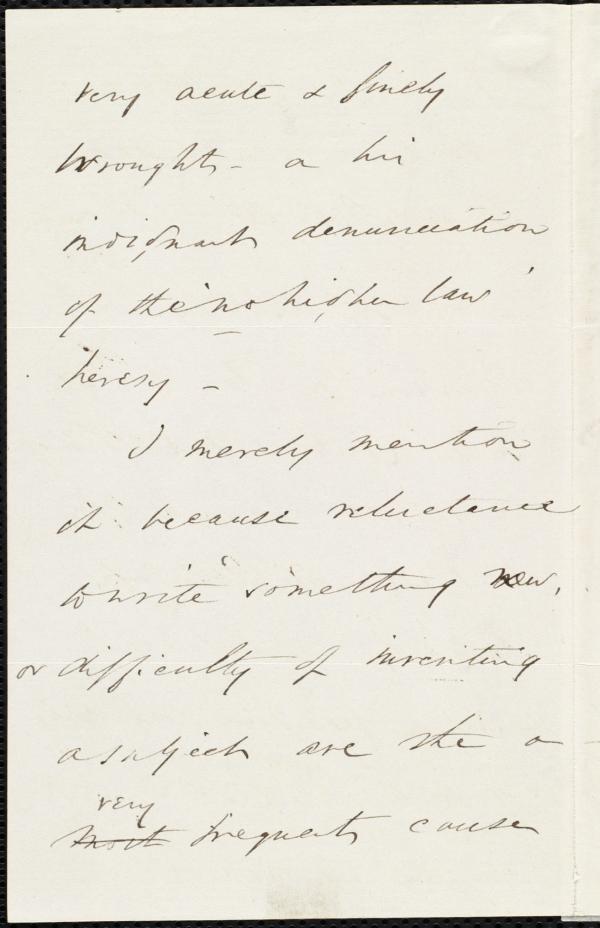 very acute & finely
wrought - a his
indignant denunciation
of the 'no higher law'
heresy -
I merely mention
it because reluctance
to write something new,
or difficulty of inventing
a subject are the a
very
most frequent cause